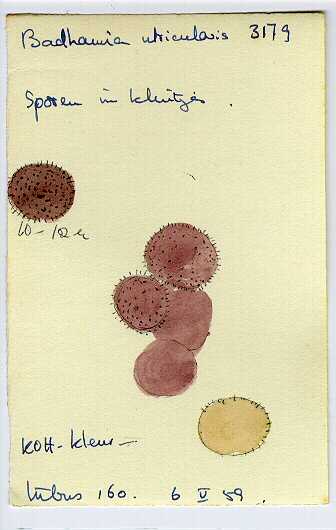 Badhamia utricularis 3179
Sporen in kluitjes.
10-12µ
KOH-kleur-
tubus 160. 6 V 59.